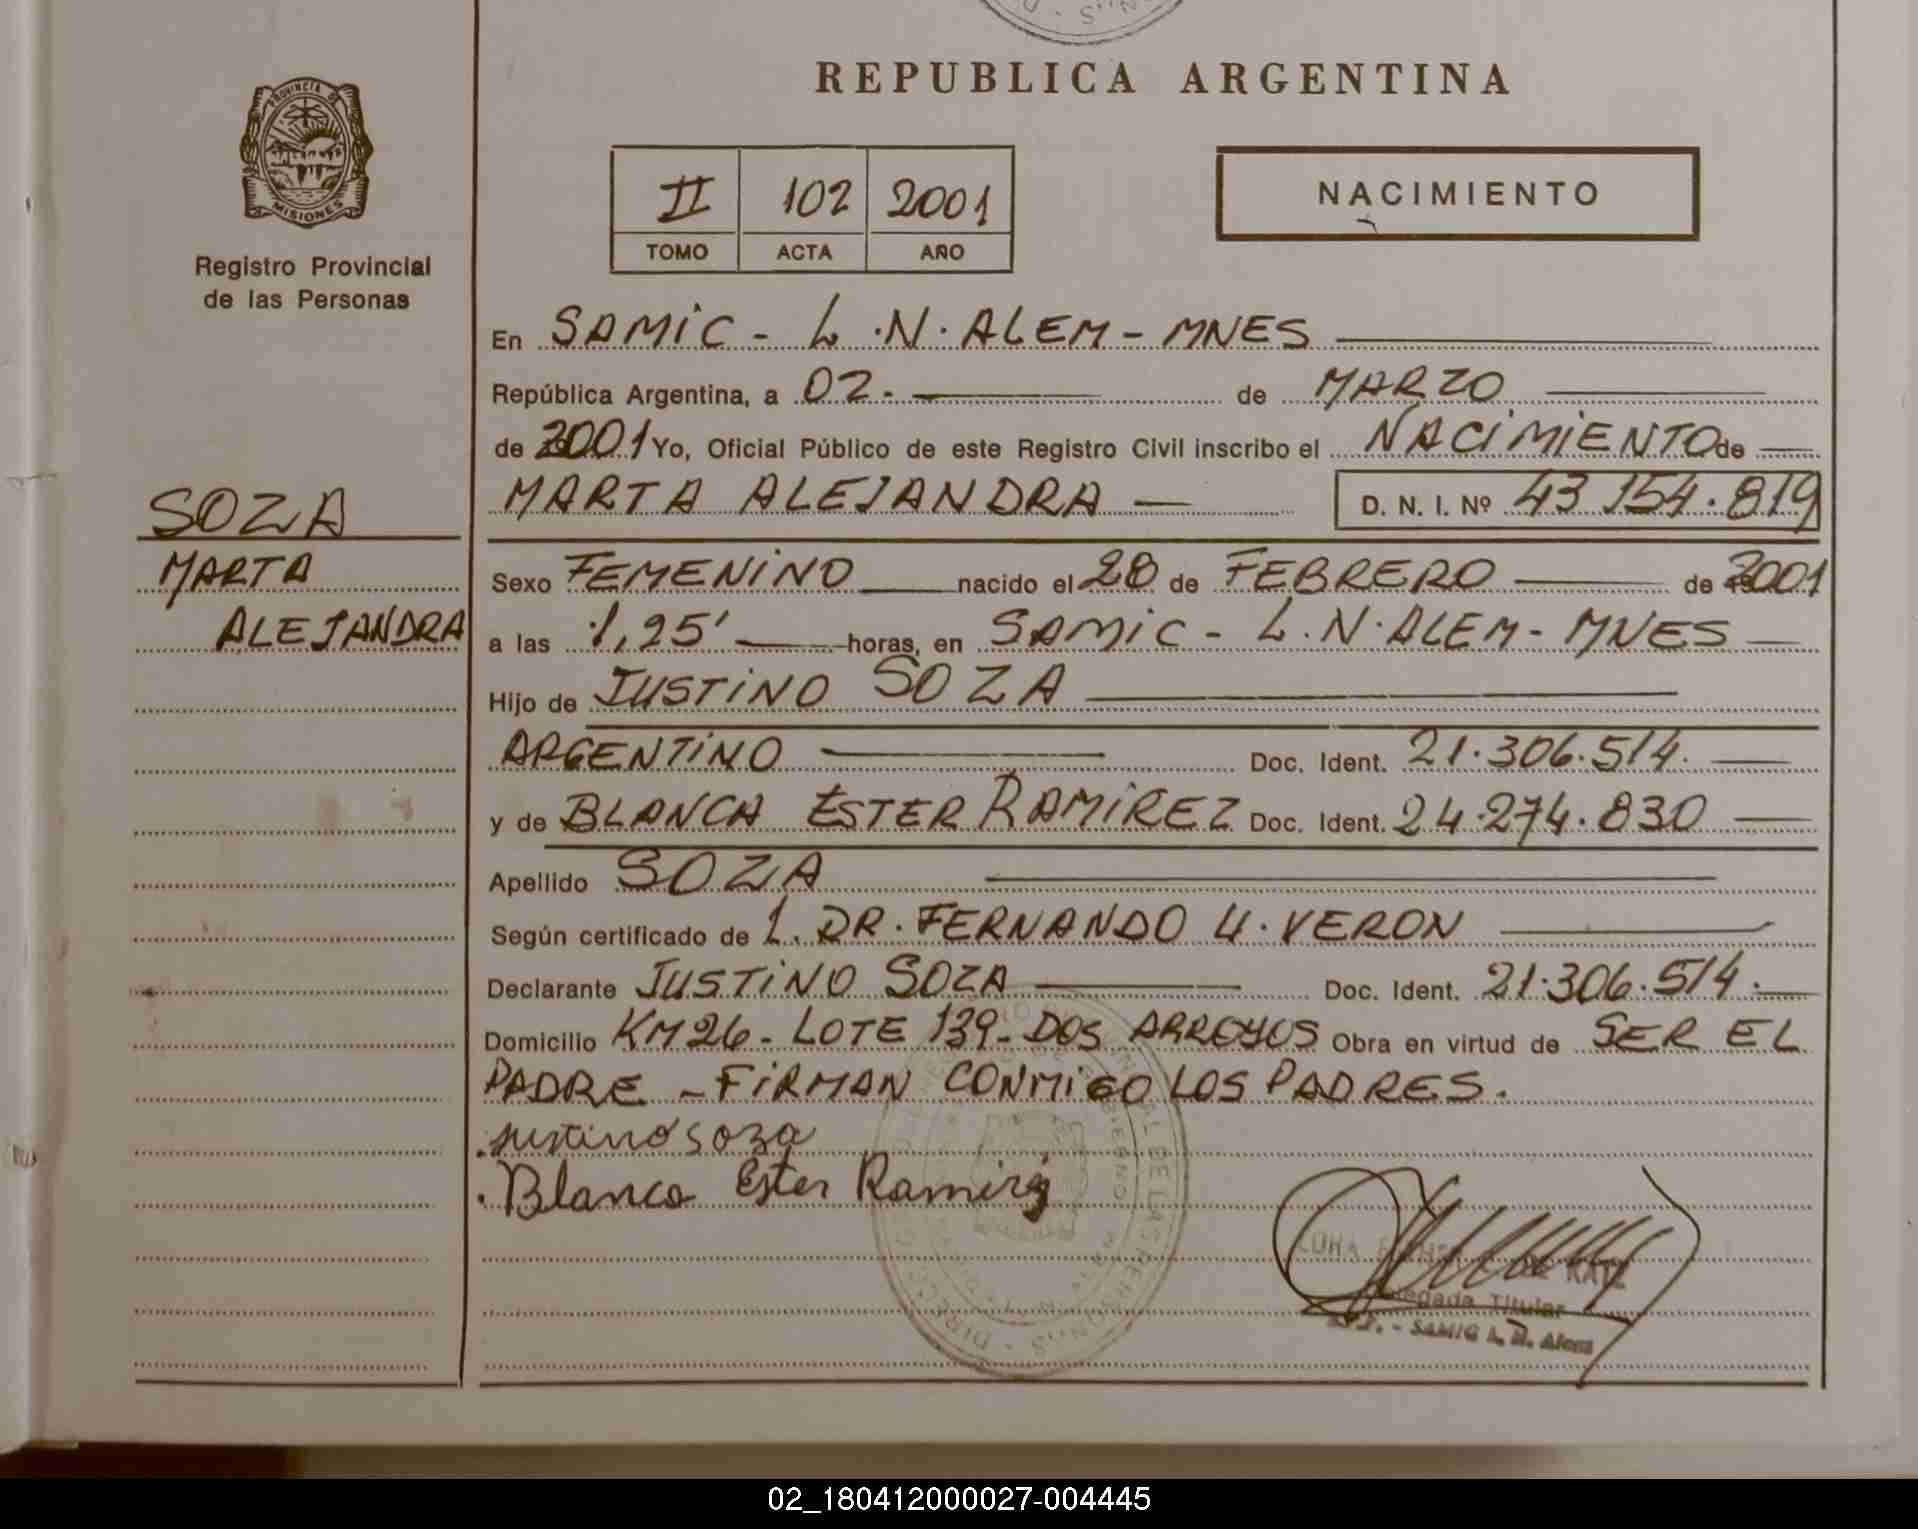 REPUBLICA ARGENTINA
PROVINCIA DE
MISIONES
Registro Provincial
de las Personas
II 102 2001
TOMO ACTA AÑO
NACIMIENTO
SOZA
MARTA
ALEJANDRA
En SAMIC - L.N. ALEM - MNES
República Argentina, a 02. de MARZO
de 2001 Yo, Oficial Público de este Registro Civil inscribo el NACIMIENTO de
MARTA ALEJANDRA — D. N. I. Nº 43.154.819
Sexo FEMENINO nacido el 28 de FEBRERO de 2001
a las 1,25' horas, en SAMIC - L.N. ALEM - MNES
Hijo de JUSTINO SOZA
ARGENTINO Doc. Ident. 21.306.514.
y de BLANCA ESTER RAMIREZ Doc. Ident. 24.274.830
Apellido SOZA
Según certificado de 1. DR. FERNANDO U. VERON
Declarante JUSTINO SOZA Doc. Ident. 21.306.514.
Domicilio KM 26 - LOTE 139 - DOS ARROYOS Obra en virtud de SER EL
PADRE - FIRMAN CONMIGO LOS PADRES.
Justino Soza
Blanca Ester Ramirez
DE KATZ
Delegada Titular
SAMIC L. N. Alem
02_180412000027-004445